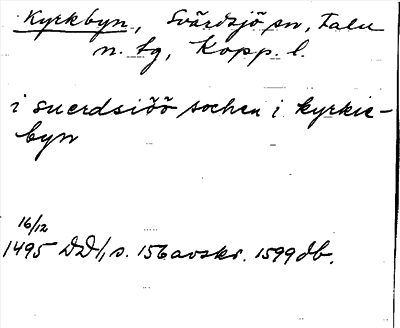 Kyrkbyn, Svärdsjö sn, Falu
n. tg, Kopp. l.
i suerdsiöö sochen i kyrkie-
byn
16/12
1495 DD1, s. 156 avskr. 1599 db.